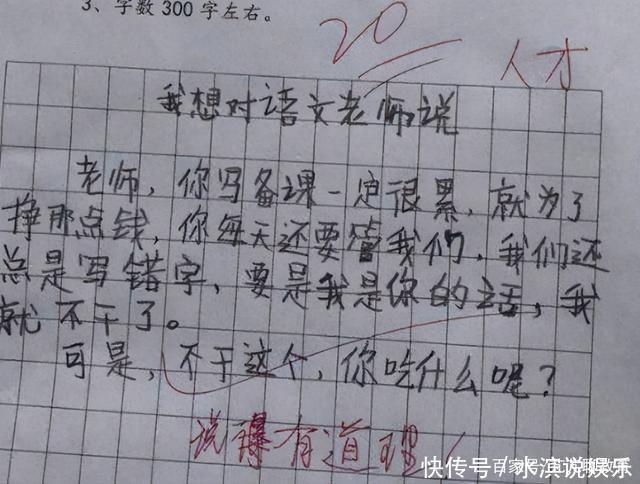 3、字数300字左右。
20
人才
我想对语文老师说
老师，你写备课一定很累，就为了
挣那点钱，你每天还要管我们，我们还
总是写错字，要是我是你的话，我
就不干了。
可是，不干这个，你吃什么呢？
说得有道理！
快传号/水滨说娱乐